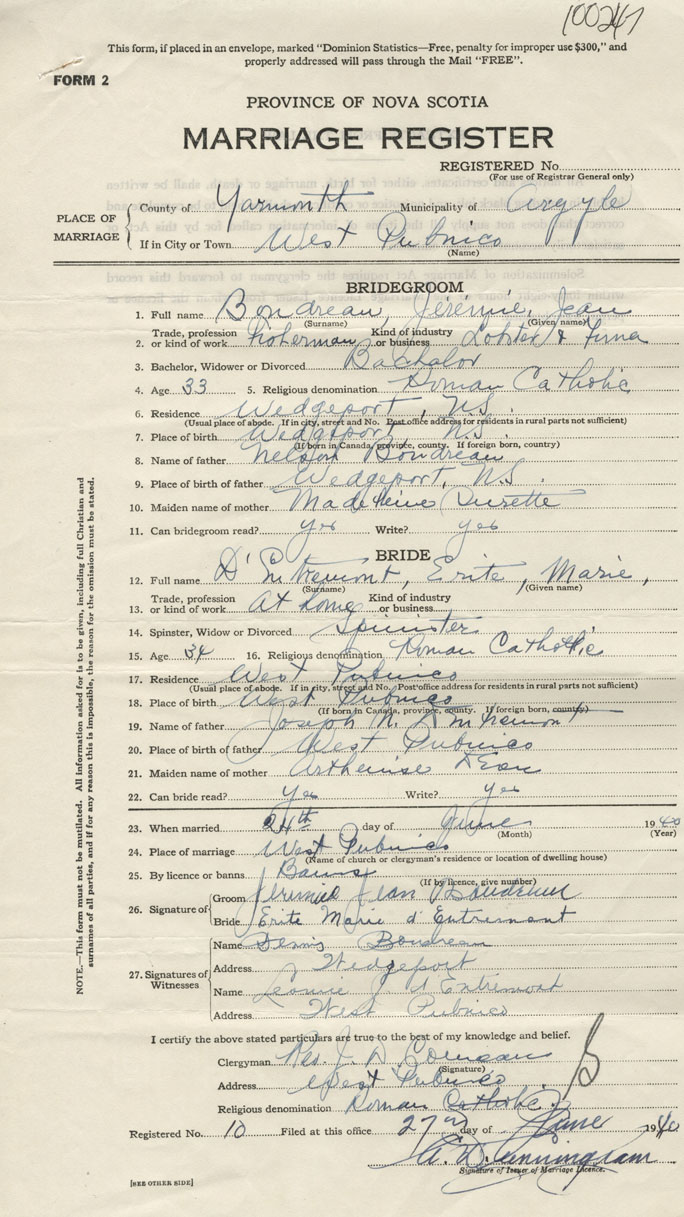 100247
This form, if placed in an envelope, marked "Dominion Statistics—Free, penalty for improper use $300," and
properly addressed will pass through the Mail "FREE".
FORM 2
PROVINCE OF NOVA SCOTIA
MARRIAGE REGISTER
REGISTERED No.
(For use of Registrar General only)
PLACE OF MARRIAGE
County of Yarmouth Municipality of Argyle
If in City or Town West Pubnico
(Name)
BRIDEGROOM
1. Full name Boudreau, Jérémie, Jean
(Surname) (Given name)
2. Trade, profession or kind of work Fisherman Kind of industry or business Lobster & Tuna
3. Bachelor, Widower or Divorced Bachelor
4. Age 33 5. Religious denomination Roman Catholic
6. Residence Wedgeport, N.S.
(Usual place of abode. If in city, street and No. Post office address for residents in rural parts not sufficient)
7. Place of birth Wedgeport, N.S.
(If born in Canada, province, county. If foreign born, country)
8. Name of father Nelson Boudreau
9. Place of birth of father Wedgeport, N.S.
10. Maiden name of mother Madeleine
11. Can bridegroom read? yes Write? yes
BRIDE
12. Full name D'Entremont, Erite, Marie,
(Surname) (Given name)
13. Trade, profession or kind of work At home Kind of industry or business
14. Spinster, Widow or Divorced Spinster
15. Age 34 16. Religious denomination Roman Catholic
17. Residence West Pubnico
(Usual place of abode. If in city, street and No. Post office address for residents in rural parts not sufficient)
18. Place of birth West Pubnico
(If born in Canada, province, county. If foreign born, country)
19. Name of father Joseph N. D'Entremont
20. Place of birth of father West Pubnico
21. Maiden name of mother
22. Can bride read? Yes Write? yes
23. When married 24th day of June 1940
(Month) (Year)
24. Place of marriage West Pubnico
(Name of church or clergyman's residence or location of dwelling house)
25. By licence or banns Banns
(If by licence, give number)
26. Signature of Groom Jeremie Jean Boudreau
Bride Erite Marie d'Entremont
27. Signatures of Witnesses
Name Denis Boudreau
Address Wedgeport
Name Leonie J. d'Entremont
Address West Pubnico
I certify the above stated particulars are true to the best of my knowledge and belief.
Clergyman Rev. J. D. Comeau
(Signature)
Address West Pubnico
Religious denomination Roman Catholic
Registered No. 10 Filed at this office 27 day of June 1940
A. D. Cunningham
Signature of Issuer of Marriage Licence.
[SEE OTHER SIDE]
NOTE.—This form must not be mutilated. All information asked for is to be given, including full Christian and
surnames of all parties, and if for any reason this is impossible, the reason for the omission must be stated.